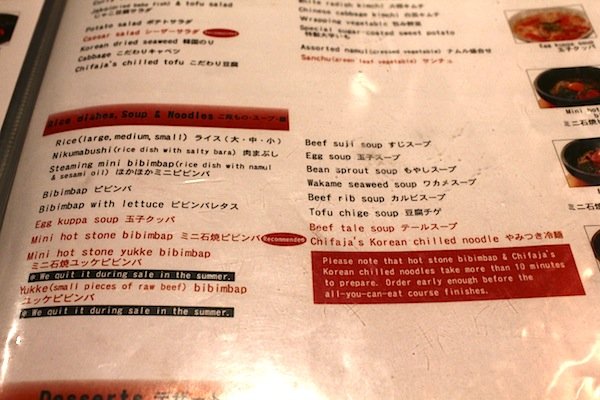 Jako(dried baby fruit & tofu salad
じゃこ豆腐サラダ
Potato salad ポテトサラダ
Caesar salad シーザーサラダ
Korean dried seaweed 韓国のり
Cabbage こだわりキャベツ
Chifaja's chilled tofu こだわり豆腐
White radish kimchi
Chinese cabbage kimchi 白菜キムチ
Wrapping vegetable 包み野菜
Special sugar-coated sweet potato
特製大学いも
Assorted namul(dressed vegetable) ナムル盛合せ
Sanchu(green leaf vegetable) サンチュ
Egg kuppa soup
玉子クッパ
Mini hot
ミニ石焼ビ
Rice dishes, Soup & Noodles ご飯もの・スープ・麺
Rice(large, medium, small) ライス(大・中・小)
Nikumabushi(rice dish with salty bara) 肉まぶし
Steaming mini bibimbap(rice dish with namul
& sesami oil) ほかほかミニビビンバ
Bibimbap ビビンバ
Bibimbap with lettuce ビビンバレタス
Egg kuppa soup 玉子クッパ
Mini hot stone bibimbap ミニ石焼ビビンバ Recommended
Mini hot stone yukke bibimbap
ミニ石焼ユッケビビンバ
* We quit it during sale in the summer.
Yukke(small pieces of raw beef) bibimbap
ユッケビビンバ
* We quit it during sale in the summer.
Beef suji soup すじスープ
Egg soup 玉子スープ
Bean sprout soup もやしスープ
Wakame seaweed soup ワカメスープ
Beef rib soup カルビスープ
Tofu chige soup 豆腐チゲ
Beef tale soup テールスープ
Chifaja's Korean chilled noodle やみつき冷麺
Please note that hot stone bibimbap & Chifaja's
Korean chilled noodles take more than 10 minutes
to prepare. Order early enough before the
all-you-can-eat course finishes.
Desserts デザート